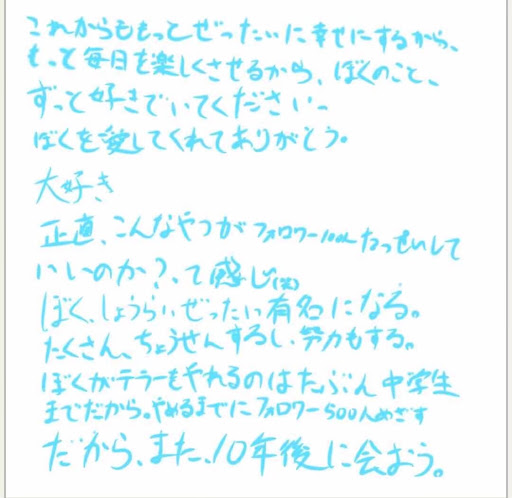 これからももっとぜったいに幸せにするから、
もっと毎日を楽しくさせるから、ぼくのこと、
ずっと好きでいてください〜
ぼくを愛してくれてありがとう。
大好き
正直、こんなやつがフォロワー100人たっせいして
いいのか?、て感じ(笑)
ぼく、しょうらいぜったい有名になる。
たくさん、ちょうせんするし、努力もする。
ぼくがテラーをやれるのはたぶん中学生
までだから。やめるまでにフォロワー500人めざす
だから、また、10年後に会おう。